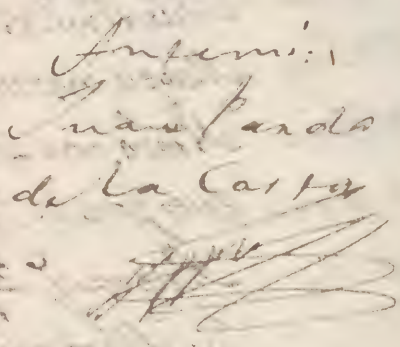 Ante mi:
Juan Pando
de la Costa